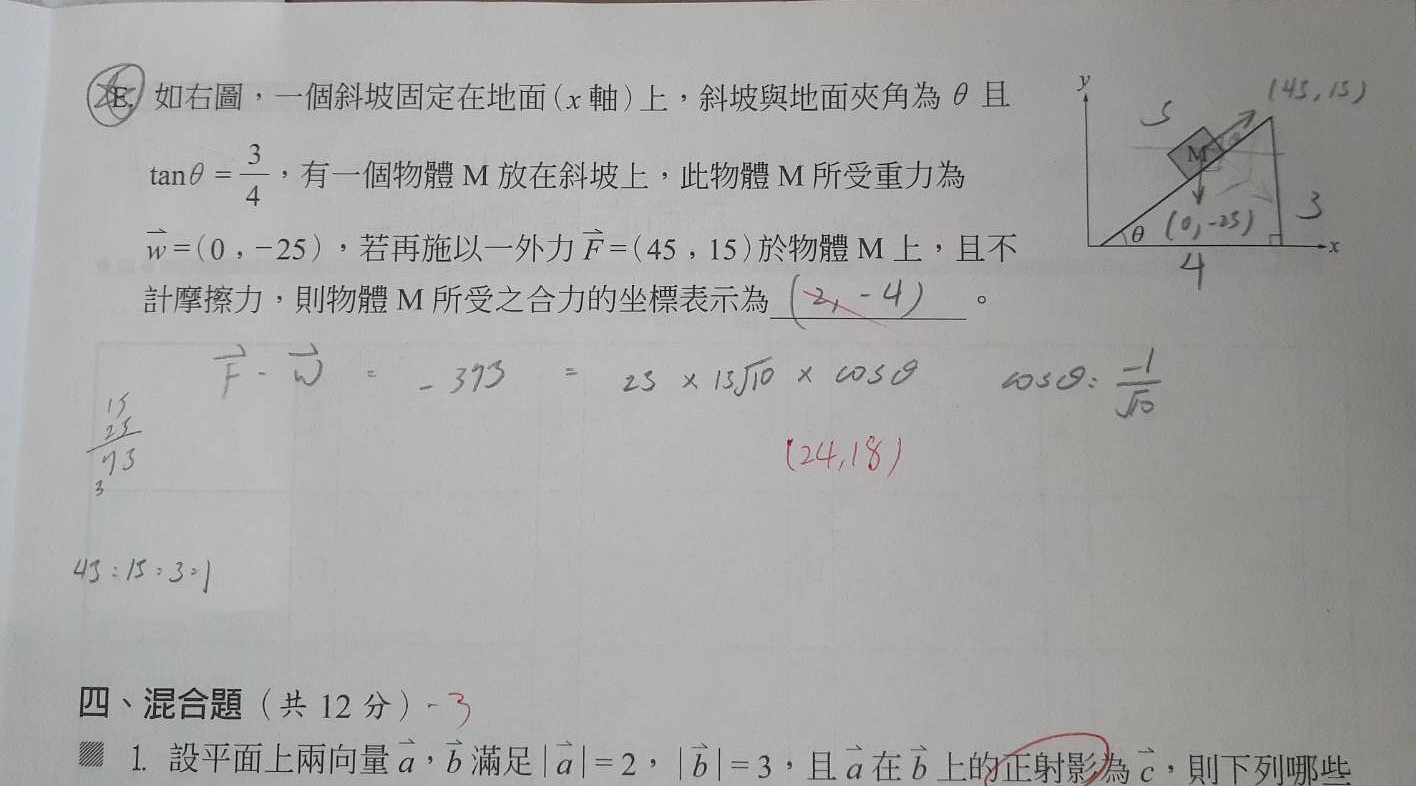 E. 如右圖，一個斜坡固定在地面(x 軸)上，斜坡與地面夾角為 θ 且
tanθ = 3/4，有一個物體 M 放在斜坡上，此物體 M 所受重力為
w⃗=(0，-25)，若再施以一外力 F⃗=(45，15)於物體 M 上，且不
計摩擦力，則物體 M 所受之合力的坐標表示為 (2, -4) 。
y
(45, 15)
5
M
3
θ
(0, -25)
x
4
F⃗ · w⃗ = -375 = 25 × 15√10 × cosθ
cosθ: -1/√10
15
25
75
3
(24, 18)
45 : 15 = 3 : 1
四、混合題（共 12 分） -3
1. 設平面上兩向量 a⃗，b⃗ 滿足|a⃗|=2，|b⃗|=3，且 a⃗ 在 b⃗ 上的正射影為 c⃗，則下列哪些